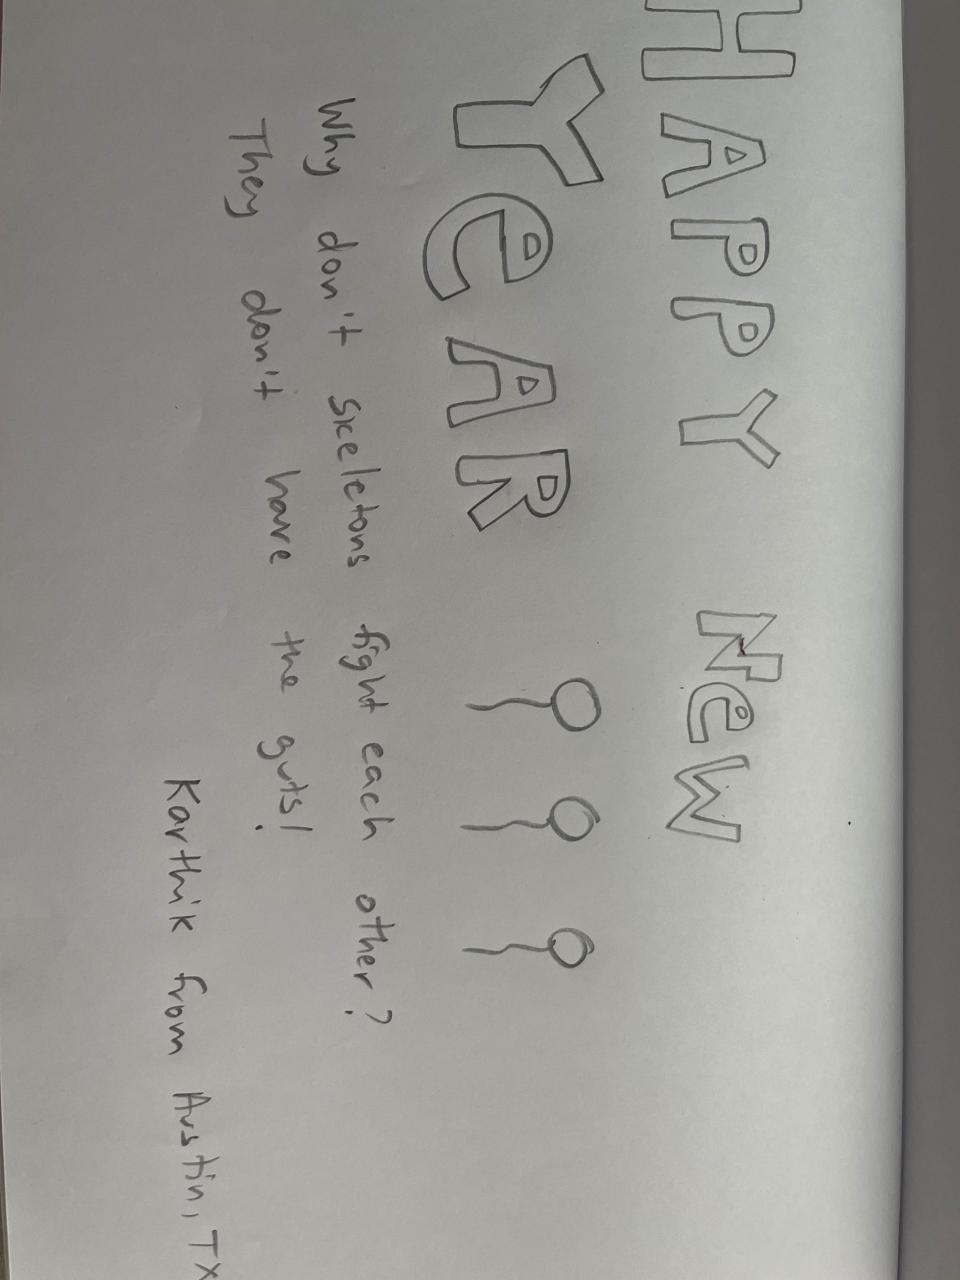 HAPPY NeW
YeAR
Why don't skeletons fight each other?
They don't have the guts!
Karthik from Austin, TX